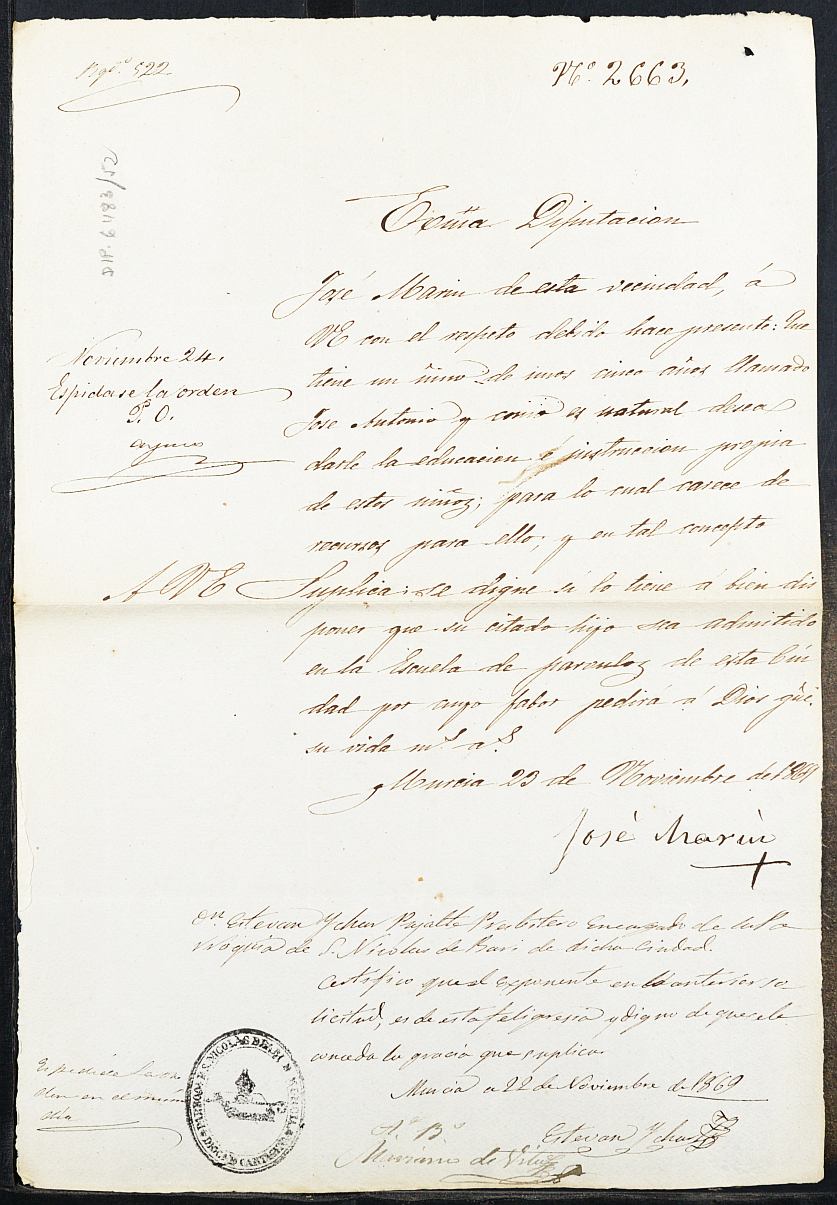 Nº 2663,
Exma Diputacion
José Marin de esta vecindad, á
VE con el respeto debido hace presente: Que
tiene un niño de unos cinco años llamado
Jose Antonio y como es natural desea
darle la educacion é instruccion propia
de estos niños; para lo cual carece de
recursos para ello; y en tal concepto
A VE Suplica: se digne si lo tiene á bien dis
poner que su citado hijo sea admitido
en la Escuela de parvulos de esta Ciu
dad por cuyo fabor pedirá á Dios güe.
su vida ms. as.
Murcia 23 de Noviembre de 1869
José Marin
Noviembre 24.
Espidase la orden
P. O.
DIP. 6483/25
Dn. Estevan Pajalte Presbitero Encargado de la Pa
rroquia de S. Nicolas de Bari de dicha Ciudad.
Certifico que el exponente en la anterior so
licitud, es de esta feligresia y digno de que se le
conceda la gracia que suplica.
Murcia a 22 de Noviembre de 1869
Estevan
Vº Bº
Mariano de
Espedida la or
den en el mismo
dia
S. NICOLAS DE BARI DE MURCIA